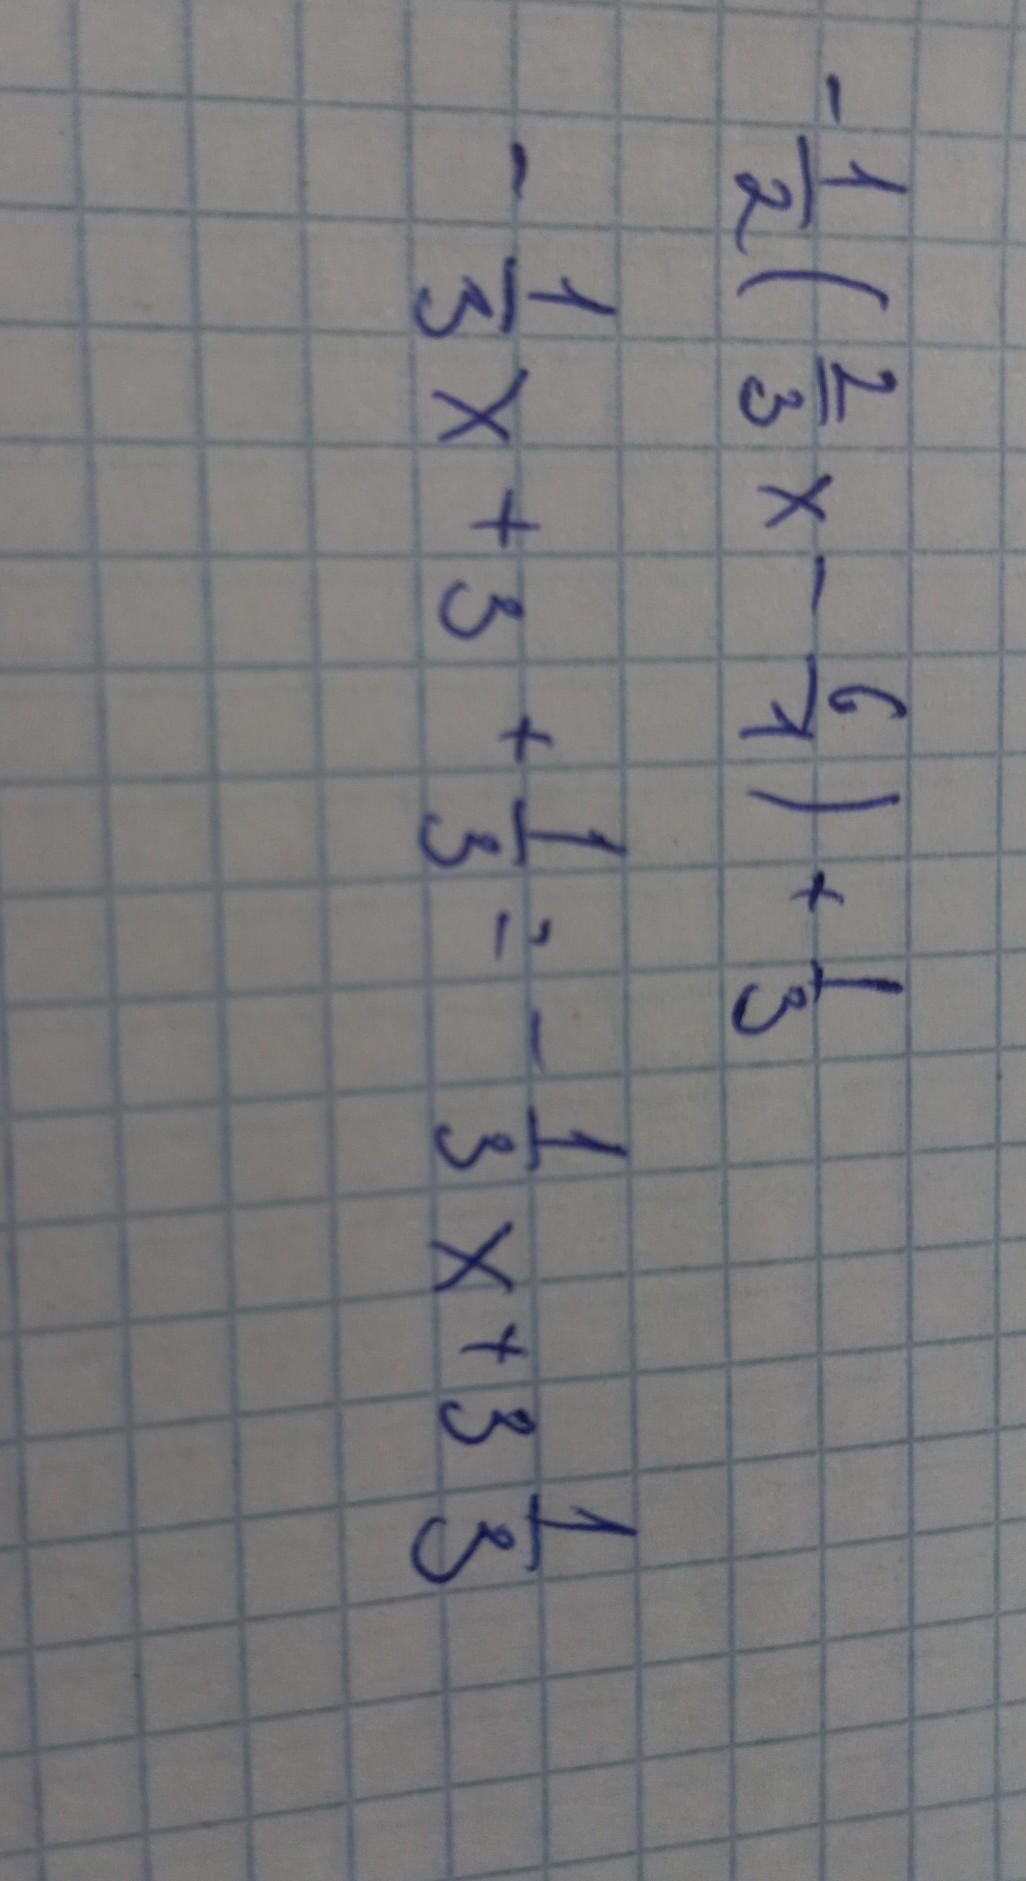 -1/2(2/3x-6/1)+1/3
-1/3x+3+1/3=-1/3x+3 1/3